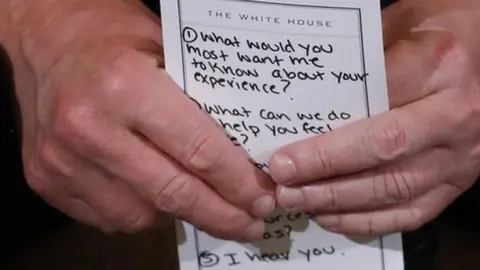 THE WHITE HOUSE
① What would you
most want me
to know about your
experience?
What can we do
help you feel
e?
⑤ I hear you.